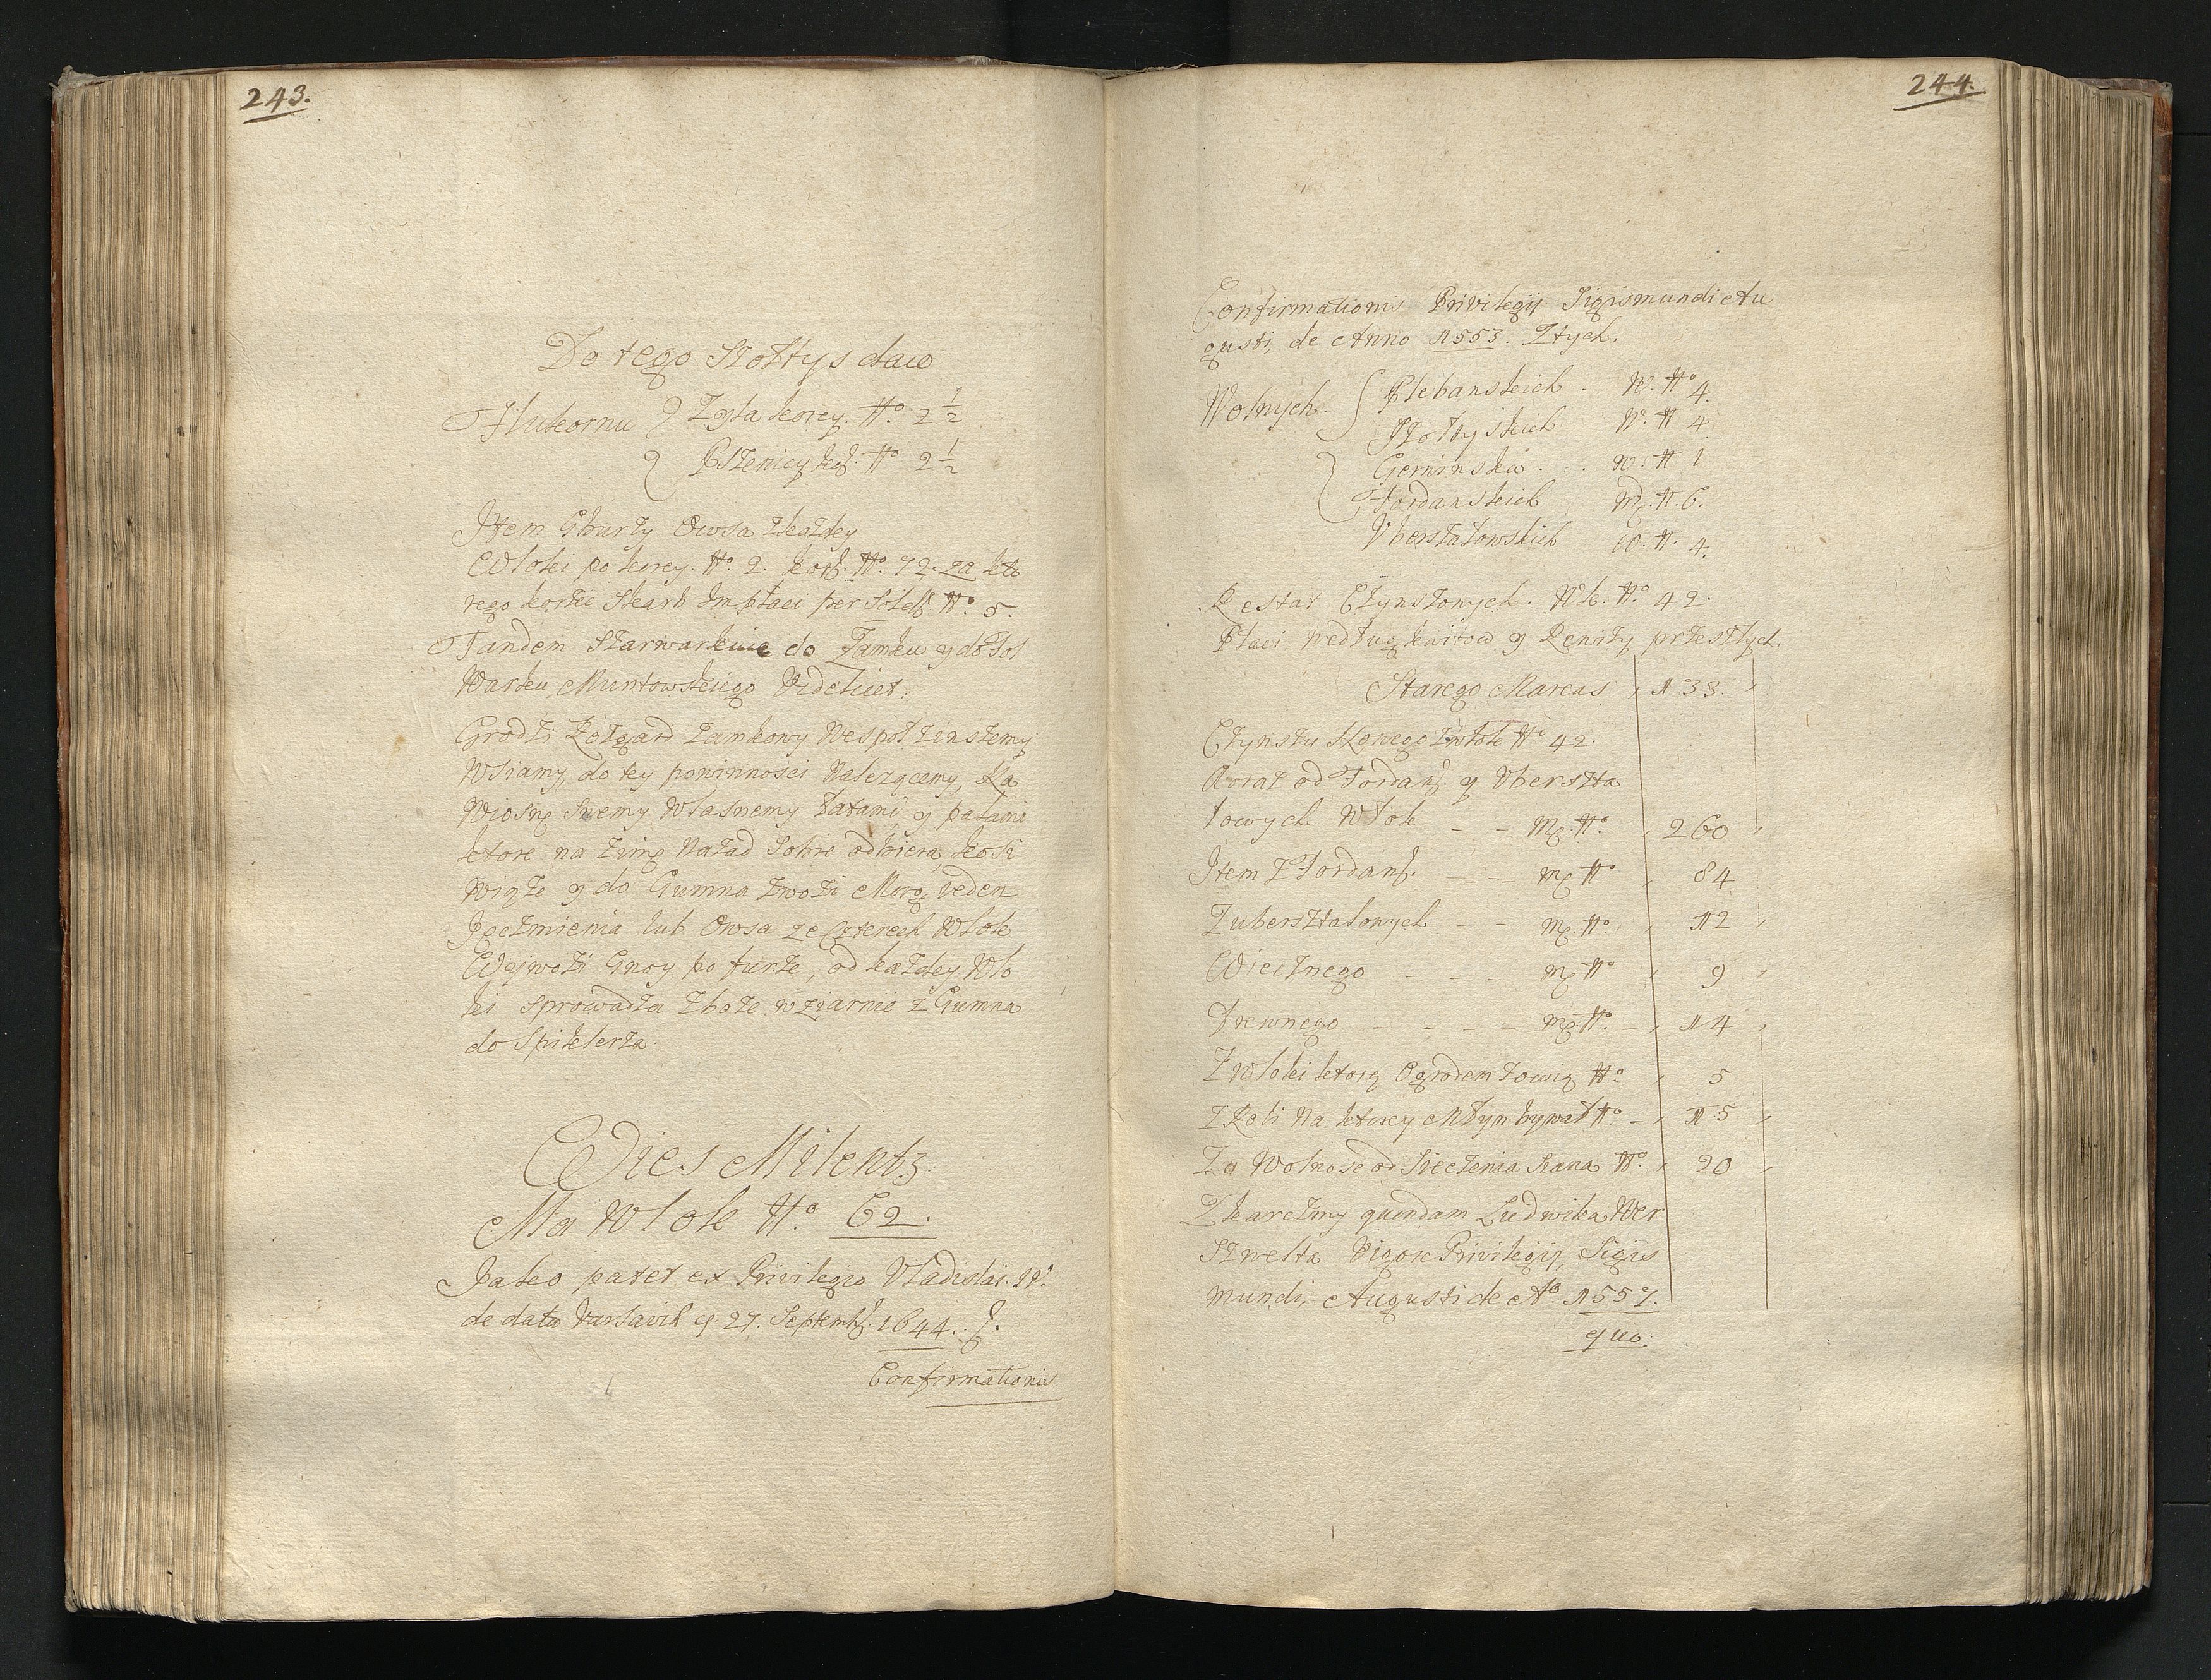 243.
Do tego Szołtys daie
Hukornu { Zyta korcy. No. 2 1/2
{ Pszenicy kor. No 2 1/2
Item Gburzy Owsa zkazdey
Wloki po korcy. No. 2. korc. No. 72. za kto
rego korzec Skarb Im płaci per No. 5.
Tandem Szarwarkuie do Zamku y do Fol
Warku Muntowskiego Videlicet.
Grodzi Zołgard Zamkowy Wespoł zinszemy
Wsiamy do tey powinnosci Nalezącemy, Na
Wiosnę Swemy Własnemy Łatami y palami
ktore na zimę Nazad Sobie odbiera, kosi
Wiąze y do Gumna zwozi Morg ieden
Jęczmienia lub Owsa ze Czterech Włok
Wywozi Gnoy po furze, od kazdey Wło
ki sprowadza zboze w ziarnie z Gumna
do Spiklerza.
Wies Milentz.
Ma Włok No. 62.
Jako patet ex Privilegio Vladislai. IV.
de data Varsaviæ 27. Septembr. 1644.
Confirmationis
244.
Confirmationis Privilegij Sigismundi Au
gusti, de Anno 1553. Ztych.
Wolnych. { Plebanskich. W. No 4.
Szołtyskich W. N 4
{ Geminska. W. N 1
Jordanskich N. 6.
Vbersżałowskich W. N. 4.
Restat Czynszowych. Wł. No. 42.
Płaci według kwitow y Renity przeszłych
Starego Marcas 133.
Czynszu Nowego zwłok No 42.
A oraz od Jordans. y Vberszta
łowych Włok — — Mg. No. 260
Item z Jordans. — — Mg No 84
Zubersztalowych — — Mg. No. 12
Wiecznego — — — Mg No 9
Drewnego — — — — Mg. No. — 14
Zwłoki ktorą Ogrodem zowią No. 5
Z Roli Na ktorey Młyn bywał No. — 15
Za Wolnosc od Sieczenia Siana No. 20
Zkarczmy quendam Ludwika Wer
Szwelta Vigore Privilegij, Sigis
mundi, Augusti de Ao. 1557.
quo.